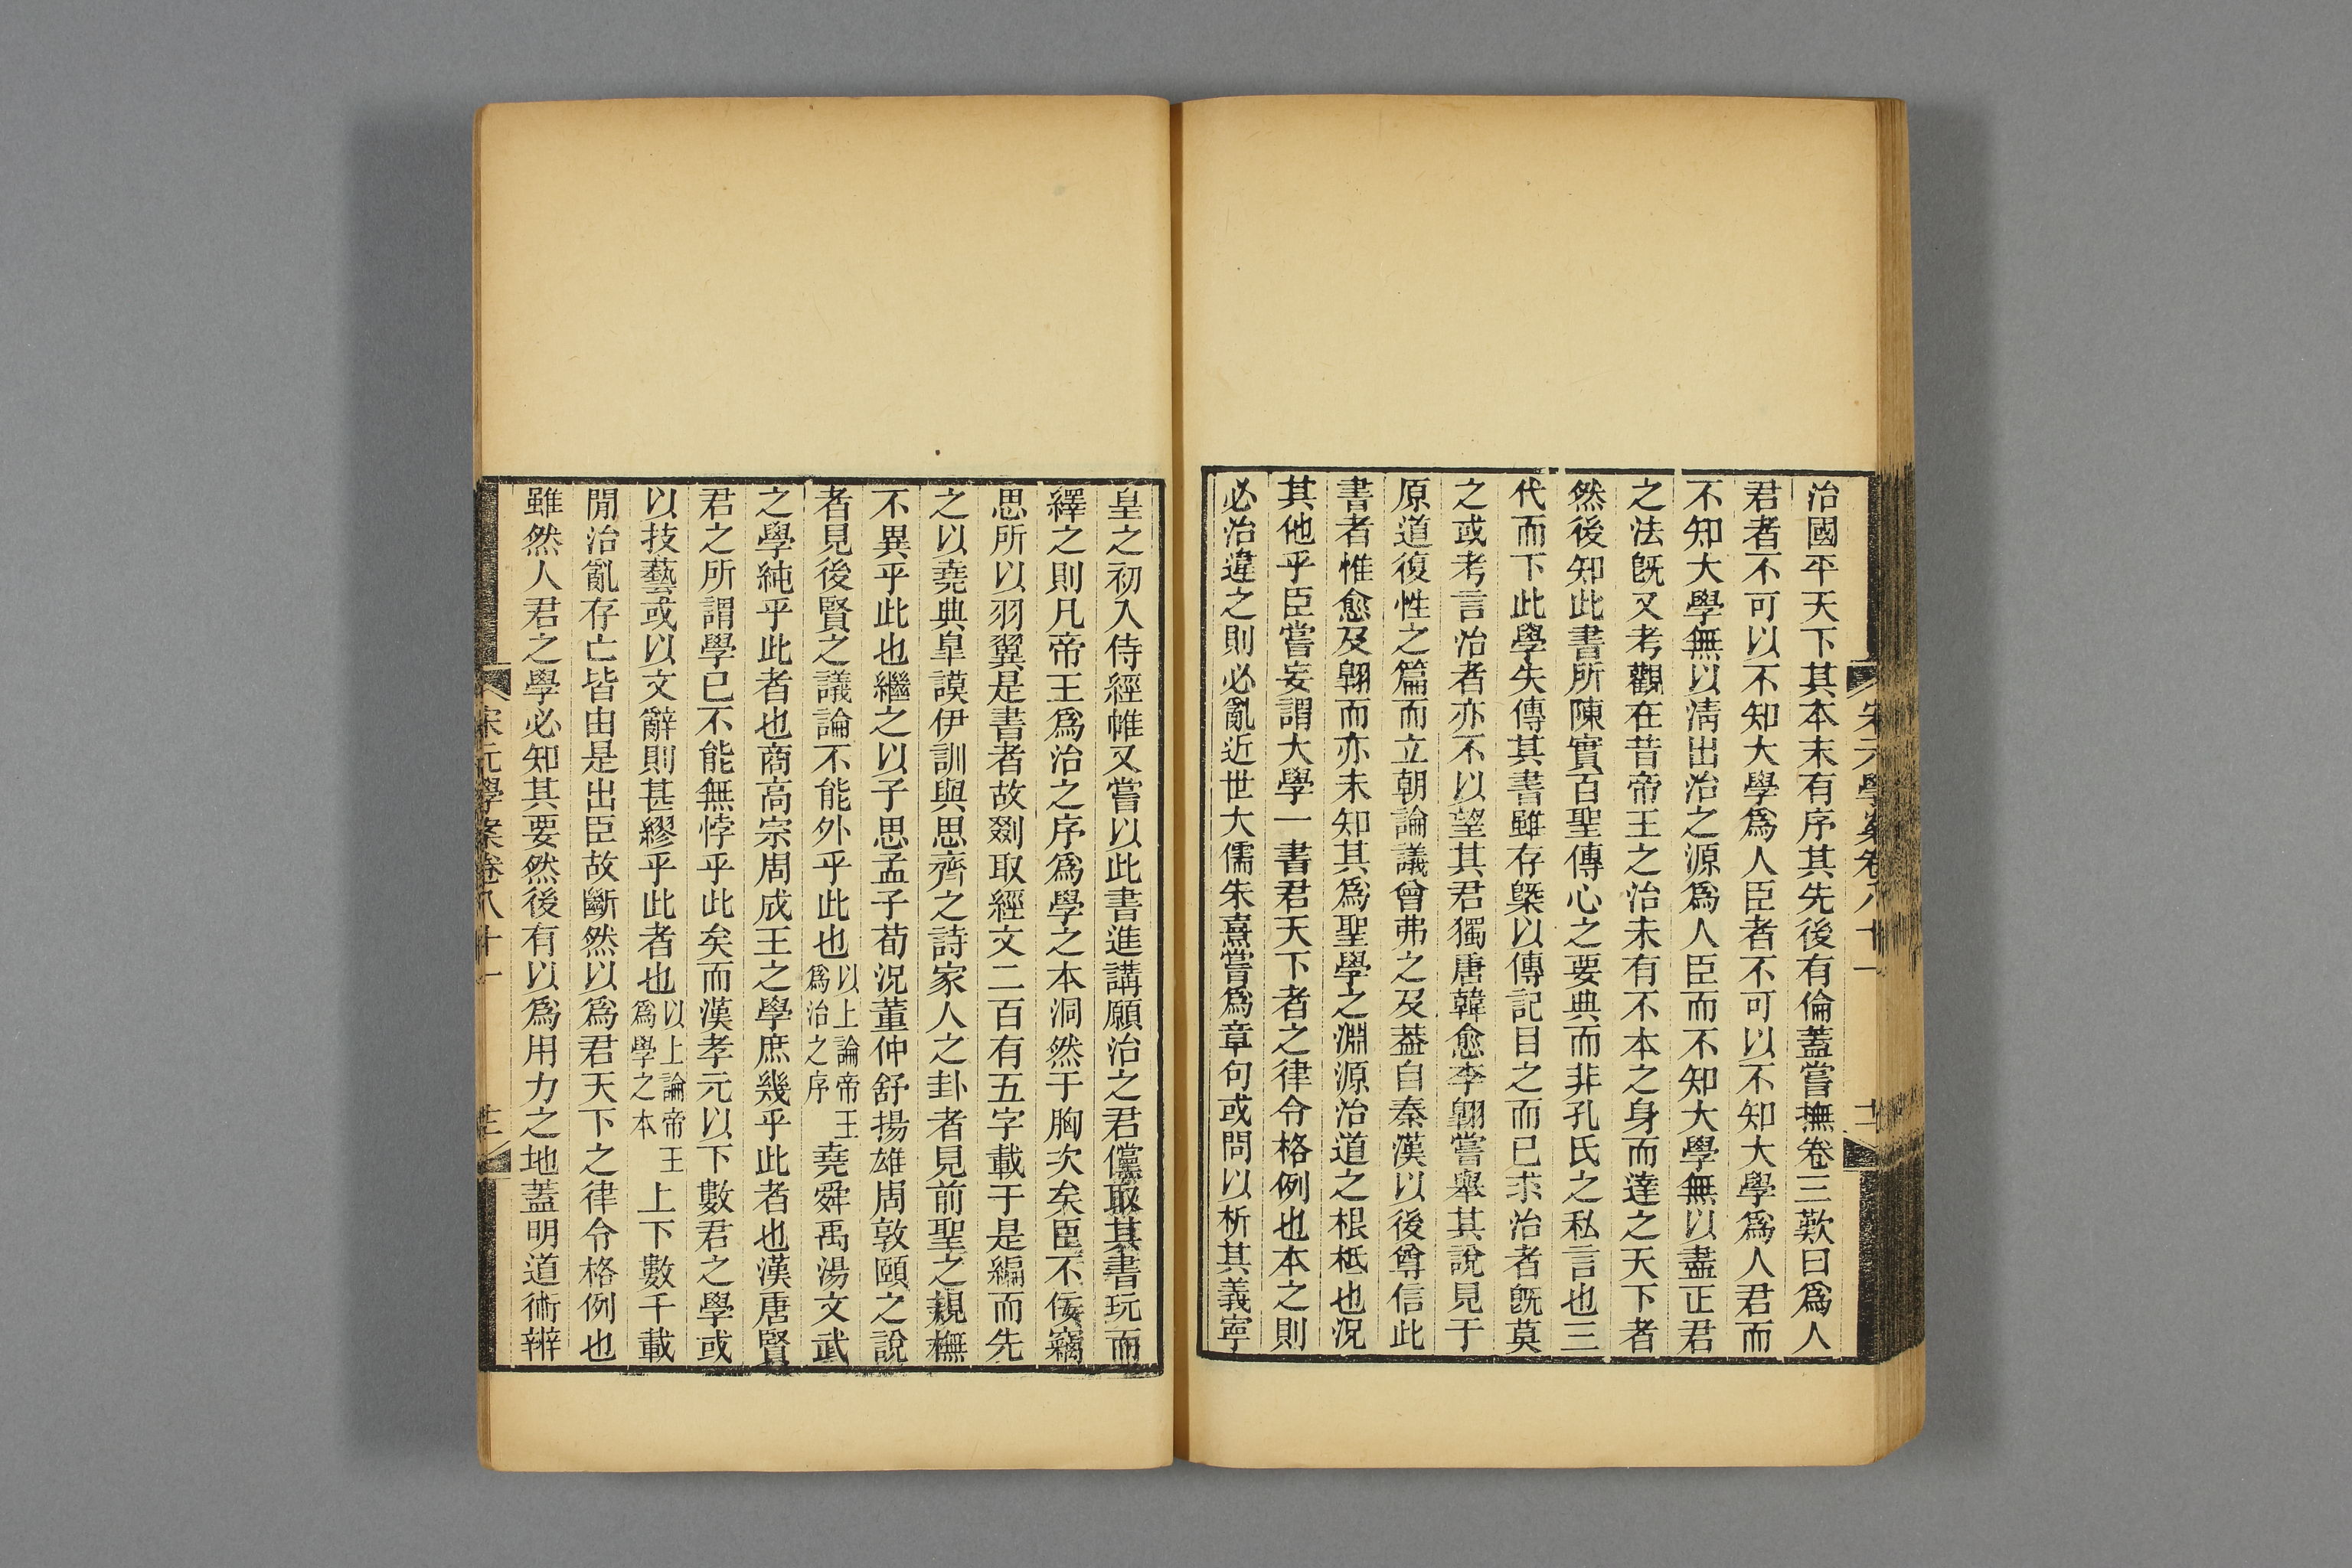 治國平天下其本末有序其先後有倫蓋嘗撫卷三歎曰爲人
君者不可以不知大學爲人臣者不可以不知大學爲人君而
不知大學無以淸出治之源爲人臣而不知大學無以盡正君
之法旣又考觀在昔帝王之治未有不本之身而達之天下者
然後知此書所陳實百聖傳心之要典而非孔氏之私言也三
代而下此學失傳其書雖存槩以傳記目之而已求治者旣莫
之或考言治者亦不以望其君獨唐韓愈李翺嘗舉其說見于
原道復性之篇而立朝論議曾弗之及葢自秦漢以後尊信此
書者惟愈及翺而亦未知其爲聖學之淵源治道之根柢也況
其他乎臣嘗妄謂大學一書君天下者之律令格例也本之則
必治違之則必亂近世大儒朱熹嘗爲章句或問以析其義寧
皇之初入侍經帷又嘗以此書進講願治之君儻取其書玩而
繹之則凡帝王爲治之序爲學之本洞然于胸次矣臣不佞竊
思所以羽翼是書者故剟取經文二百有五字載于是編而先
之以堯典皐謨伊訓與思齊之詩家人之卦者見前聖之規橅
不異乎此也繼之以子思孟子荀況董仲舒揚雄周敦頤之說
者見後賢之議論不能外乎此也以上論帝王爲治之序堯舜禹湯文武
之學純乎此者也商高宗周成王之學庶幾乎此者也漢唐賢
君之所謂學已不能無悖乎此矣而漢孝元以下數君之學或
以技藝或以文辭則甚繆乎此者也以上論帝王爲學之本上下數千載
閒治亂存亡皆由是出臣故斷然以爲君天下之律令格例也
雖然人君之學必知其要然後有以爲用力之地蓋明道術辨
宋元學案卷八十一